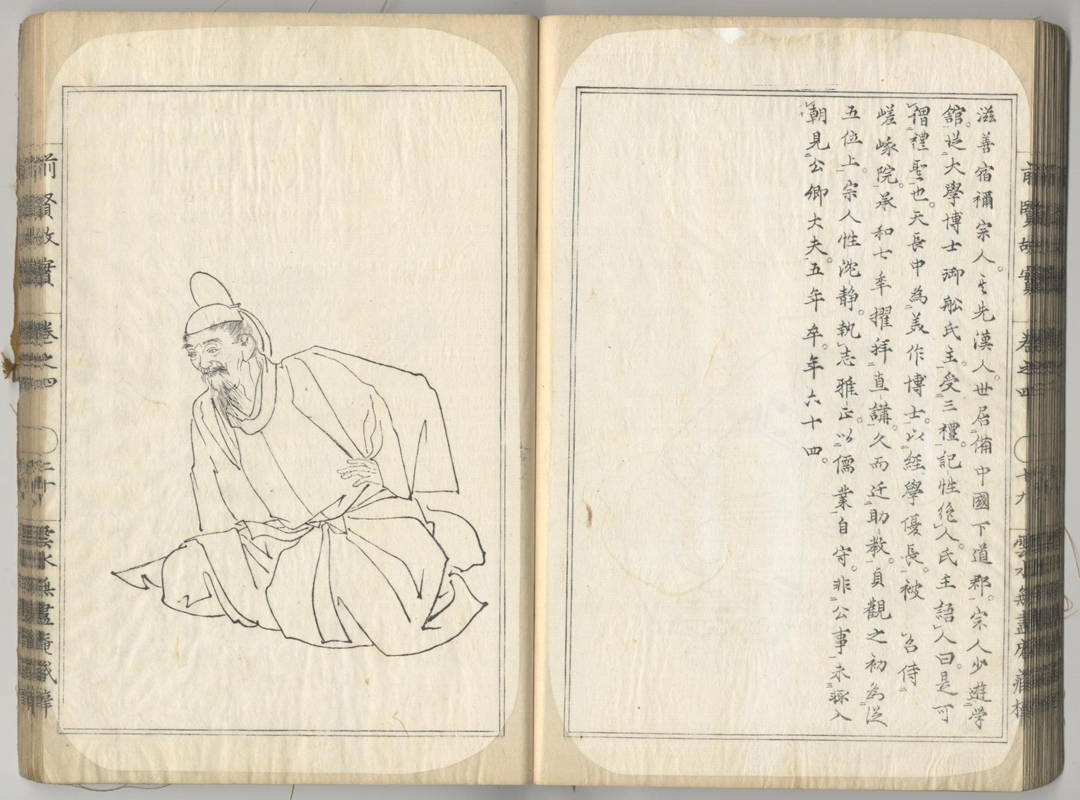 滋善宿禰宗人。其先漢人。世居備中國下道郡。宗人少遊学
館。從大學博士御船氏主。受三禮。記性絶人。氏主語人曰。是可
謂禮聖也。天長中為美作博士。以經學優長。被　召侍
嵯峨院。承和七年擢拜直講。久而迁助教。貞觀之初為從
五位上。宗人性沈静。執志雅正。以儒業自守。非公事未嘗入
朝見公卿大夫。五年卒。年六十四。
前賢故實　卷之四　十九　雲水無盡庵藏梓
前賢故實　卷之四　二十　雲水無盡庵藏梓